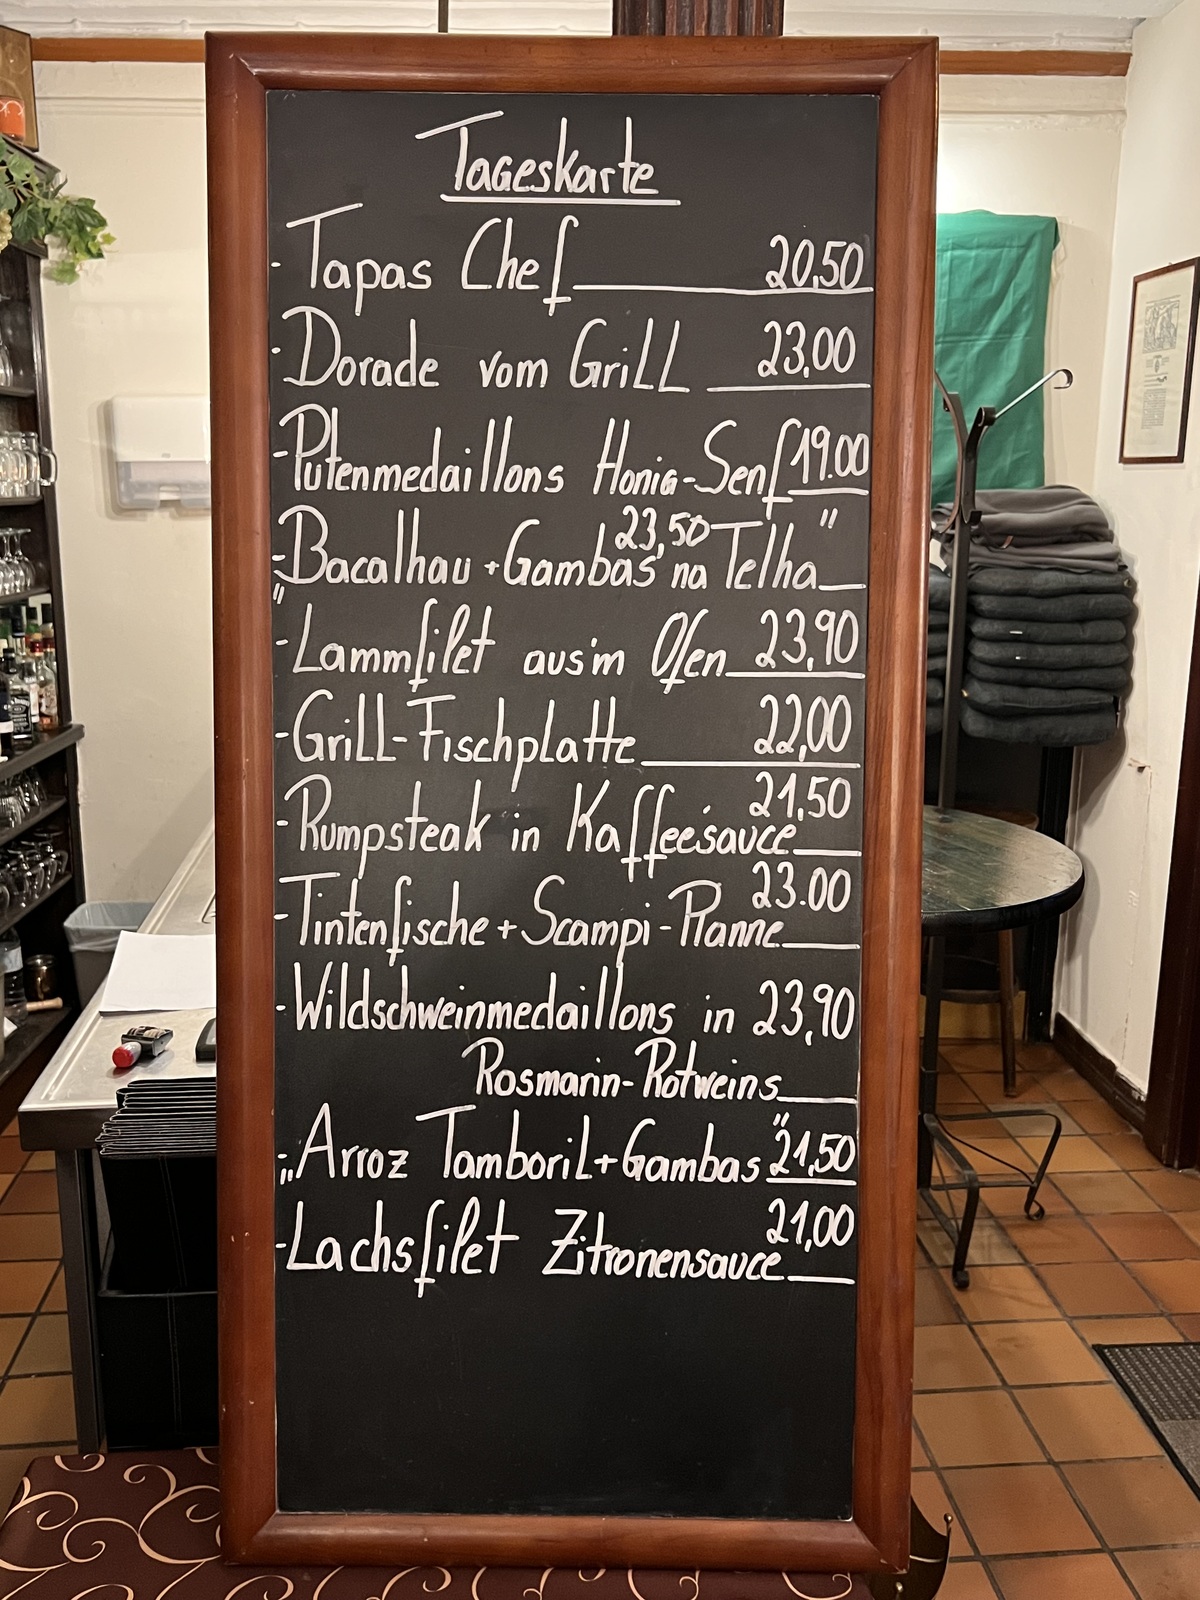 Tageskarte
- Tapas Chef 20,50
- Dorade vom Grill 23,00
- Putenmedaillons Honig-Senf 19.00
- "Bacalhau + Gambas na Telha" 23,50
- Lammfilet aus'm Ofen 23,90
- Grill-Fischplatte 22,00
- Rumpsteak in Kaffeesauce 21,50
- Tintenfische + Scampi-Pfanne 23.00
- Wildschweinmedaillons in 23,90
Rosmarin-Rotweins
- „Arroz Tamboril + Gambas" 21,50
- Lachsfilet Zitronensauce 21,00